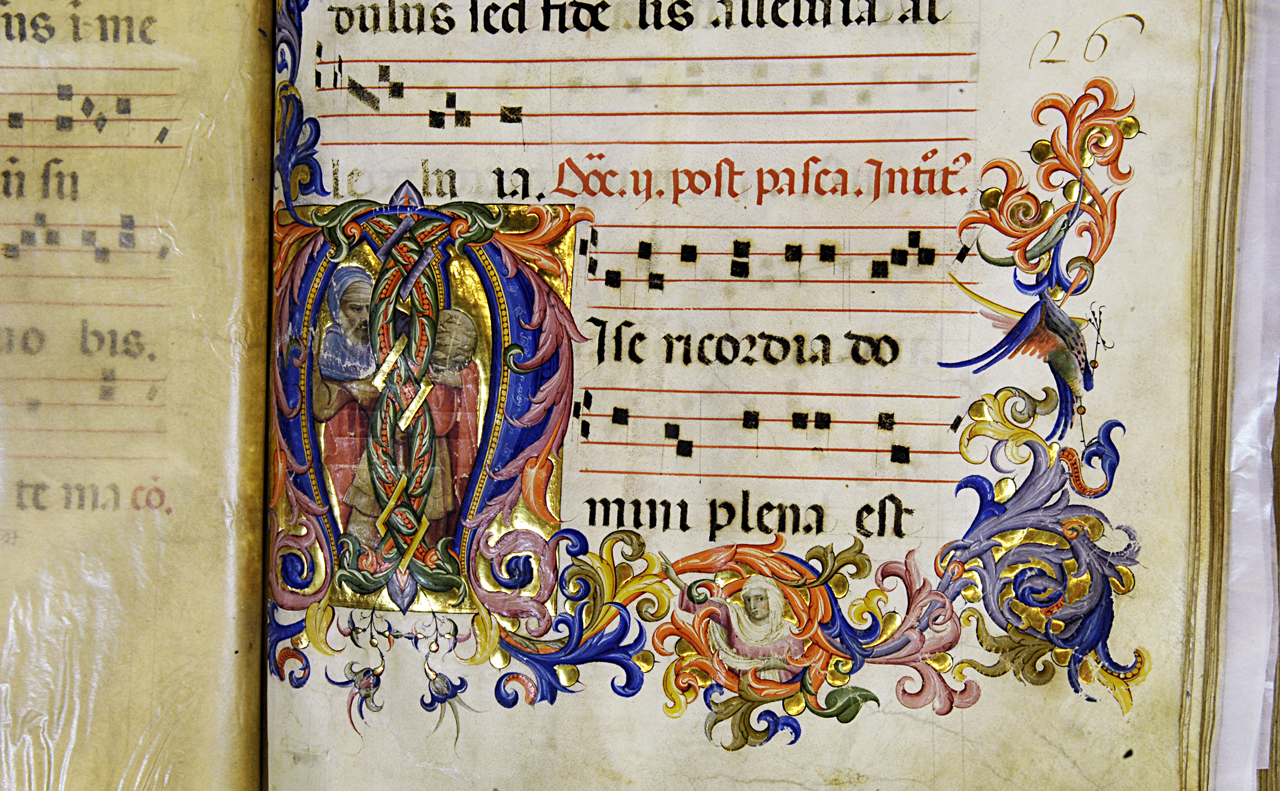 us i me
su
no bis.
te ma co.
26
dulus sed fide lis alleluia al
le lu ia. Doc. ij. post pasca. Introit.
Mise ricordia do
mini plena est